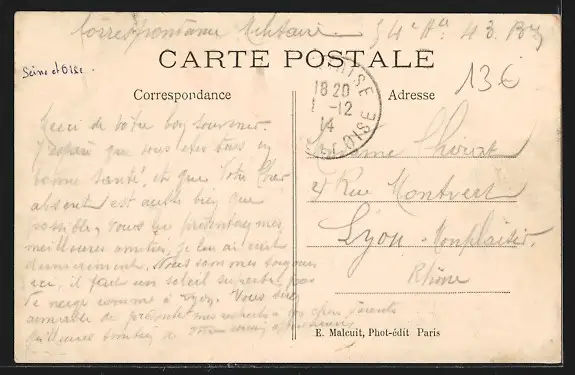 Correspondance Militaire 54e
CARTE POSTALE
Seine et Oise.
13€
Correspondance
Adresse
18 20
1 -12
14
OISE
Merci de votre bon souvenir.
J'espère que vous êtes tous en
bonne santé, et que votre cher
absent est aussi bien que
possible, vous lui présenterez mes
meilleures amitiés, je lui ai écrit
dernièrement. Nous sommes toujours
ici, il fait un soleil superbe, pas
de neige comme à Lyon. Vous serez
aimable de présenter mes respects à vos chers parents
Madame
Rue Montvert
Lyon-Monplaisir.
Rhône
E. Malcuit, Phot-édit Paris